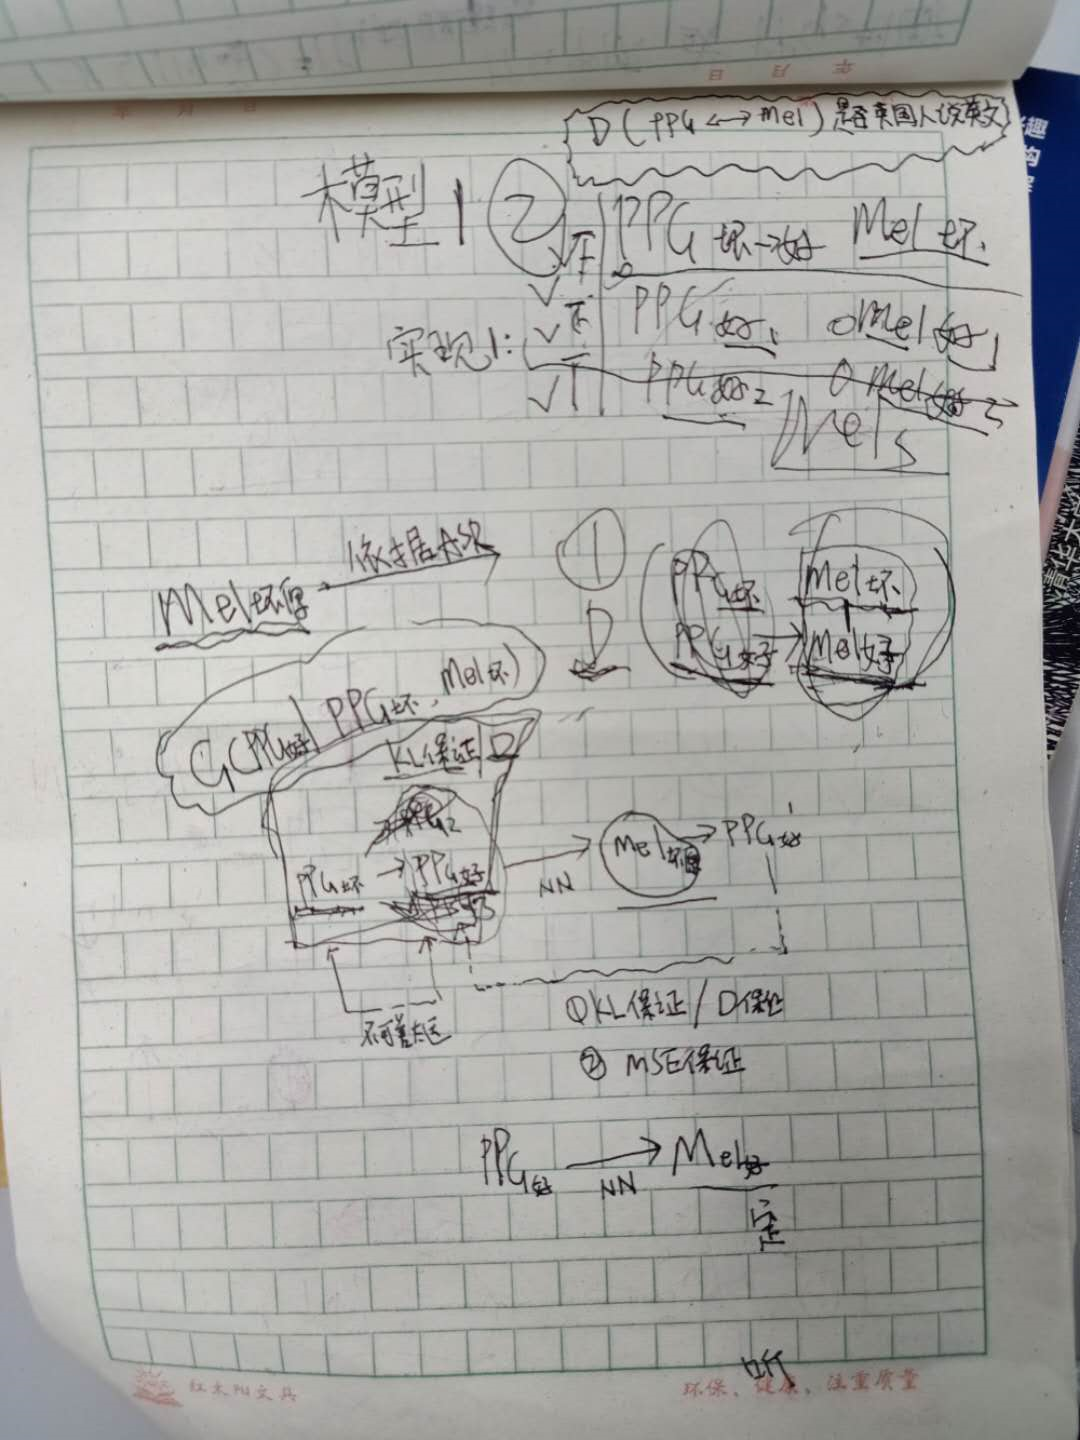 年 月 日
D(PPG↔Mel)是否英国人说英文
模型1 ②
PPG坏→好 Mel坏
PPG好1 Mel好1
实现1:
PPG好2 Mel好2
Mels
Mel坏 依据ASR
① PPG坏 Mel坏
D PPG好→Mel好
G(PPG好|PPG坏,Mel坏)
KL保证
PPG坏→PPG好 NN Mel坏→PPG好
不可差太远
①KL保证/D保证
②MSE保证
PPG好 NN Mel好
定
听
红太阳文具 环保、健康、注重质量
清华大
趣
构